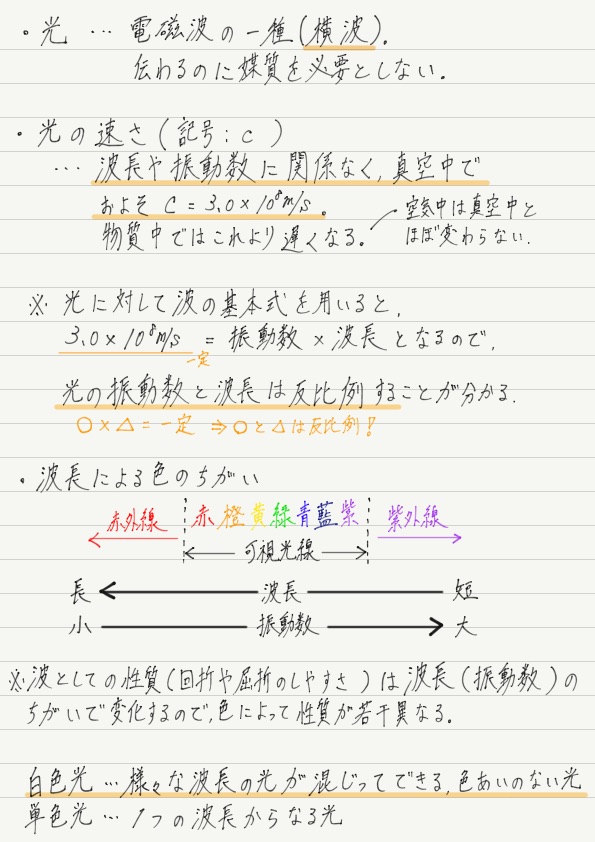 ・光 … 電磁波の一種(横波).
伝わるのに媒質を必要としない.
・光の速さ(記号:c)
… 波長や振動数に関係なく,真空中で
およそ C = 3.0×10⁸m/s.
物質中ではこれより遅くなる.
空気中は真空中と
ほぼ変わらない.
※ 光に対して波の基本式を用いると,
3.0×10⁸m/s = 振動数×波長となるので,
一定
光の振動数と波長は反比例することが分かる.
○×△=一定 ⇒○と△は反比例!
・波長による色のちがい
赤外線 赤橙黄緑青藍紫 紫外線
可視光線
長 波長 短
小 振動数 大
※波としての性質(回折や屈折のしやすさ)は波長(振動数)の
ちがいで変化するので,色によって性質が若干異なる.
白色光 … 様々な波長の光が混じってできる,色あいのない光
単色光 … 1つの波長からなる光